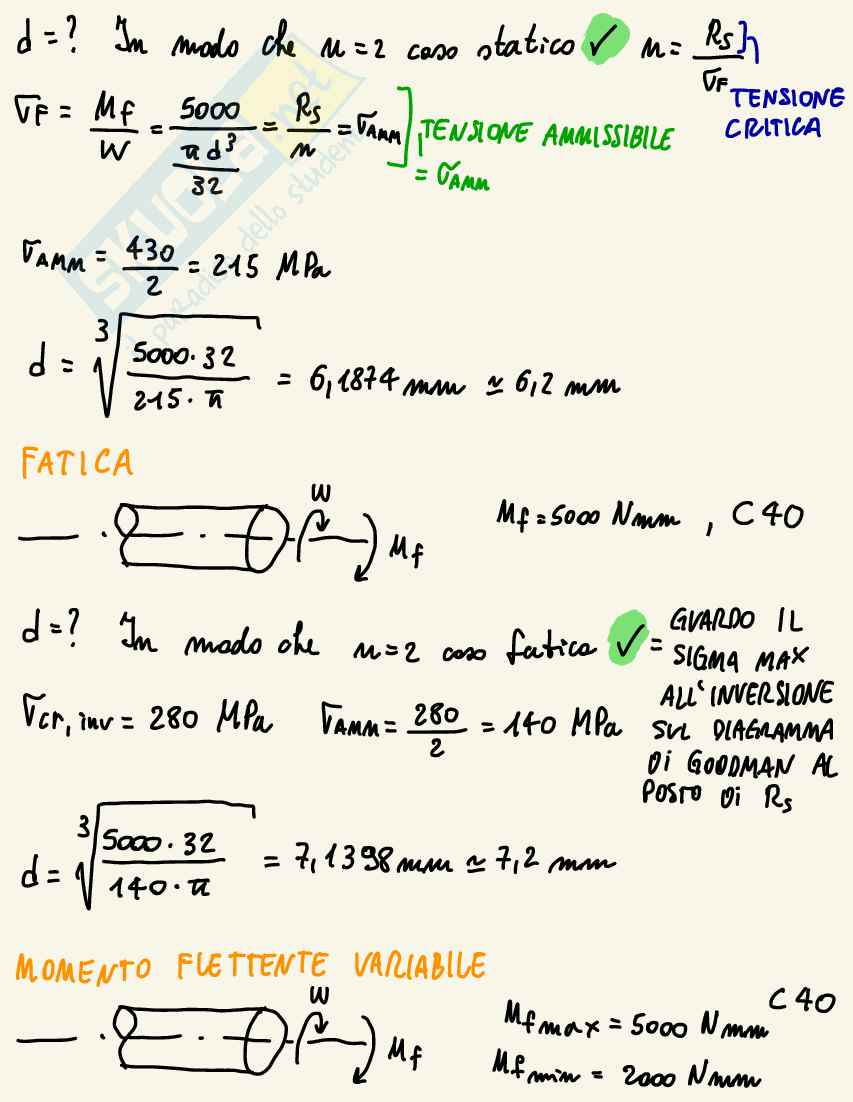 d = ? In modo che n = 2 caso statico ✓ n = Rs / σF
TENSIONE
CRITICA
σF = Mf / W = 5000 / (π d³ / 32) = Rs / n = σAMM
TENSIONE AMMISSIBILE
= σAMM
SKUOLA.net
il paradiso dello studente
σAMM = 430 / 2 = 215 MPa
d = ³√(5000 · 32 / 215 · π) = 6,1874 mm ≃ 6,2 mm
FATICA
W
Mf
Mf = 5000 Nmm , C40
d = ? In modo che n = 2 caso fatica ✓ = GUARDO IL
SIGMA MAX
ALL'INVERSIONE
SUL DIAGRAMMA
Di GOODMAN AL
POSTO Di Rs
σcr, inv = 280 MPa σAMM = 280 / 2 = 140 MPa
d = ³√(5000 · 32 / 140 · π) = 7,1398 mm ≃ 7,2 mm
MOMENTO FLETTENTE VARIABILE
W
Mf
C40
Mf max = 5000 Nmm
Mf min = 2000 Nmm